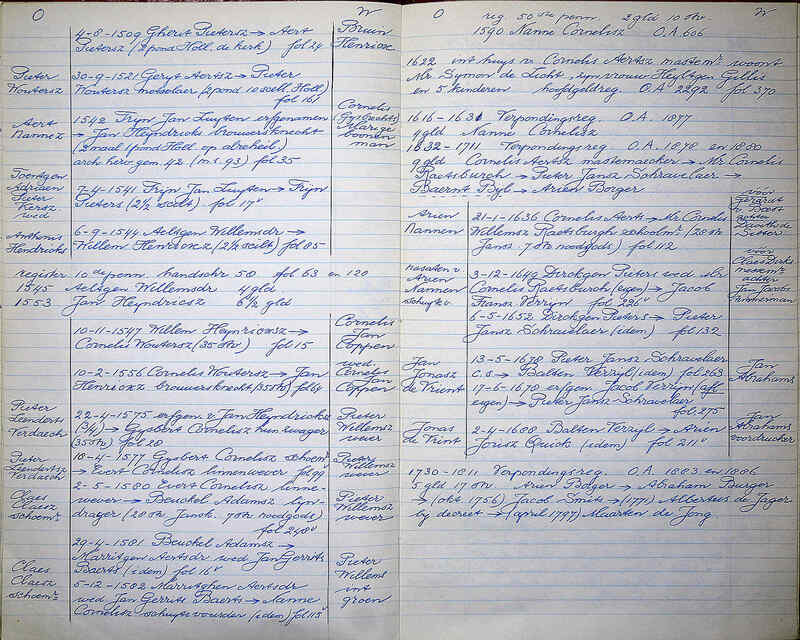 O W
4-8-1509 Gherit Pietersz → Aert
Pietersz (2 pond Holl. de kerk) fol 24
Bruun
Henricxz
Pieter
Woutersz
30-9-1521 Geryt Aertsz → Pieter
Woutersz metselaer (2 pond 10 scell. Holl)
fol 161
Aert
Nannez
1542 Tryn Jan Luyten erfgenamen
→ Jan Heyndricks brouwersknecht
(2 maal 1 pond Holl op driekeil)
arch. hero gen. 42 (m.s. 93) fol 35
Cornelis
(Gysbrechts)
Marige
boonen
man
Toentgen
Adriaen
Pieter
Kersz.
wed
7-4-1541 Tryn Jan Luyten → Tryn
Pieters (2½ scelt) fol 17v
Anthonis
Hendricks
6-9-1544 Aeltgen Willemsdr →
Willem Henricxz (2½ scelt) fol 85
register 10de penn. handschr 50 fol 63 en 120
1545 Aeltgen Willemsdr 4 gld.
1553 Jan Heyndricxz 6½ gld
10-11-1547 Willem Heynricxsz →
Cornelis Woutersz (35 stv) fol 15
Cornelis
Jan
Coppen
10-2-1556 Cornelis Woutersz → Jan
Henricxz brouwersknecht (35 stv) fol 64
wed.
Cornelys
Jan
Coppen
Pieter
Leenderts
Verduch
22-4-1575 erfgen v. Jan Heyndricks
(3/4) → Gysbert Cornelisz hun zwager
(35 stv) fol 28
Pieter
Willemsz
wever
Pieter
Leendertsz
Verduch
18-4-1577 Gysbert Cornelisz schoenmr
→ Evert Cornelisz linnenwever fol 99v
Pieter
Willemsz
wever
Claes
Claesz
schoenmr
2-5-1580 Evert Cornelisz linne-
wever → Beuckel Adamsz lyn-
drayer (28 stv Jansk. 7 stv noodgods)
fol 248v
Pieter
Willemsz
wever
29-4-1581 Beuckel Adamsz →
Marritgen Aertsdr wed Jan Gerrits
Baerts (idem) fol 16v
Claes
Claesz
schoenmr
5-12-1582 Marritghen Aertsdr
wed Jan Gerrits Baerts → Nanne
Cornelisz schuytevoerder (idem) fol 115v
Pieter
Willems
int
groen
O W
reg 50ste penn 2 gld 10 stv.
1590 Nanne Cornelisz O.A. 606
1622 int huys v Cornelis Aertsz mastemr. woont
Mr. Symon de Licht, zyn vrouw Heyltgen Gillis
en 5 kinderen hoofdgeldreg. O.A. 2292 fol 370
1616-1631 Verpondingsreg. O.A. 1877
4 gld Nanne Cornelisz
1632-1711 Verpondingsreg. O.A. 1878 en 1880
9 gld Cornelis Aertsz mastemaecker → Mr. Cornelis
Raetsburch → Pieter Jansz Schravelaer →
Baernt Byl → Arien Borger
Arien
Nannen
21-1-1636 Cornelis Aerts → Mr. Cornelis
Willemsz Raetsburgh schoolmr (28 stv
Jans. 7 stv noodgods) fol 112
vóór
Gerardt
v. Soest
achter
Davidt de
Setter
nasaten v
Arien
Nannen
schuytv.
3-12-1649 Dirckgen Pieters wed Mr.
Cornelis Raetsburch (eigen) → Jacob
Fransz Verryn fol 226v
6-5-1652 Dirckgen Pieters → Pieter
Jansz Schravelaer (idem) fol 132
vóór
Claes Dirks
metsemr
achter
Jan Jacobs
timmerman
Jan
Jonasz
de Vrient
13-5-1678 Pieter Jansz Schravelaer
c.s. → Balten Verryl (idem) fol 263
17-6-1678 erfgen Jacob Verryn (afl
eigen) → Pieter Jansz Schravelaer
fol 275
Jan
Abrahams
Jonas
de Vrint
2-4-1688 Balten Verayl → Arien
Jorisz Quick (idem) fol 211v
Jan
Abrahams
voordrucker
1730-1811 Verpondingsreg. O.A. 1883 en 1886
5 gld 17 stv. Arien Borger → Abraham Burger
→ (okt. 1756) Jacob Smits → (1771) Albertus de Jager
by decreet → (april 1797) Maarten de Jong